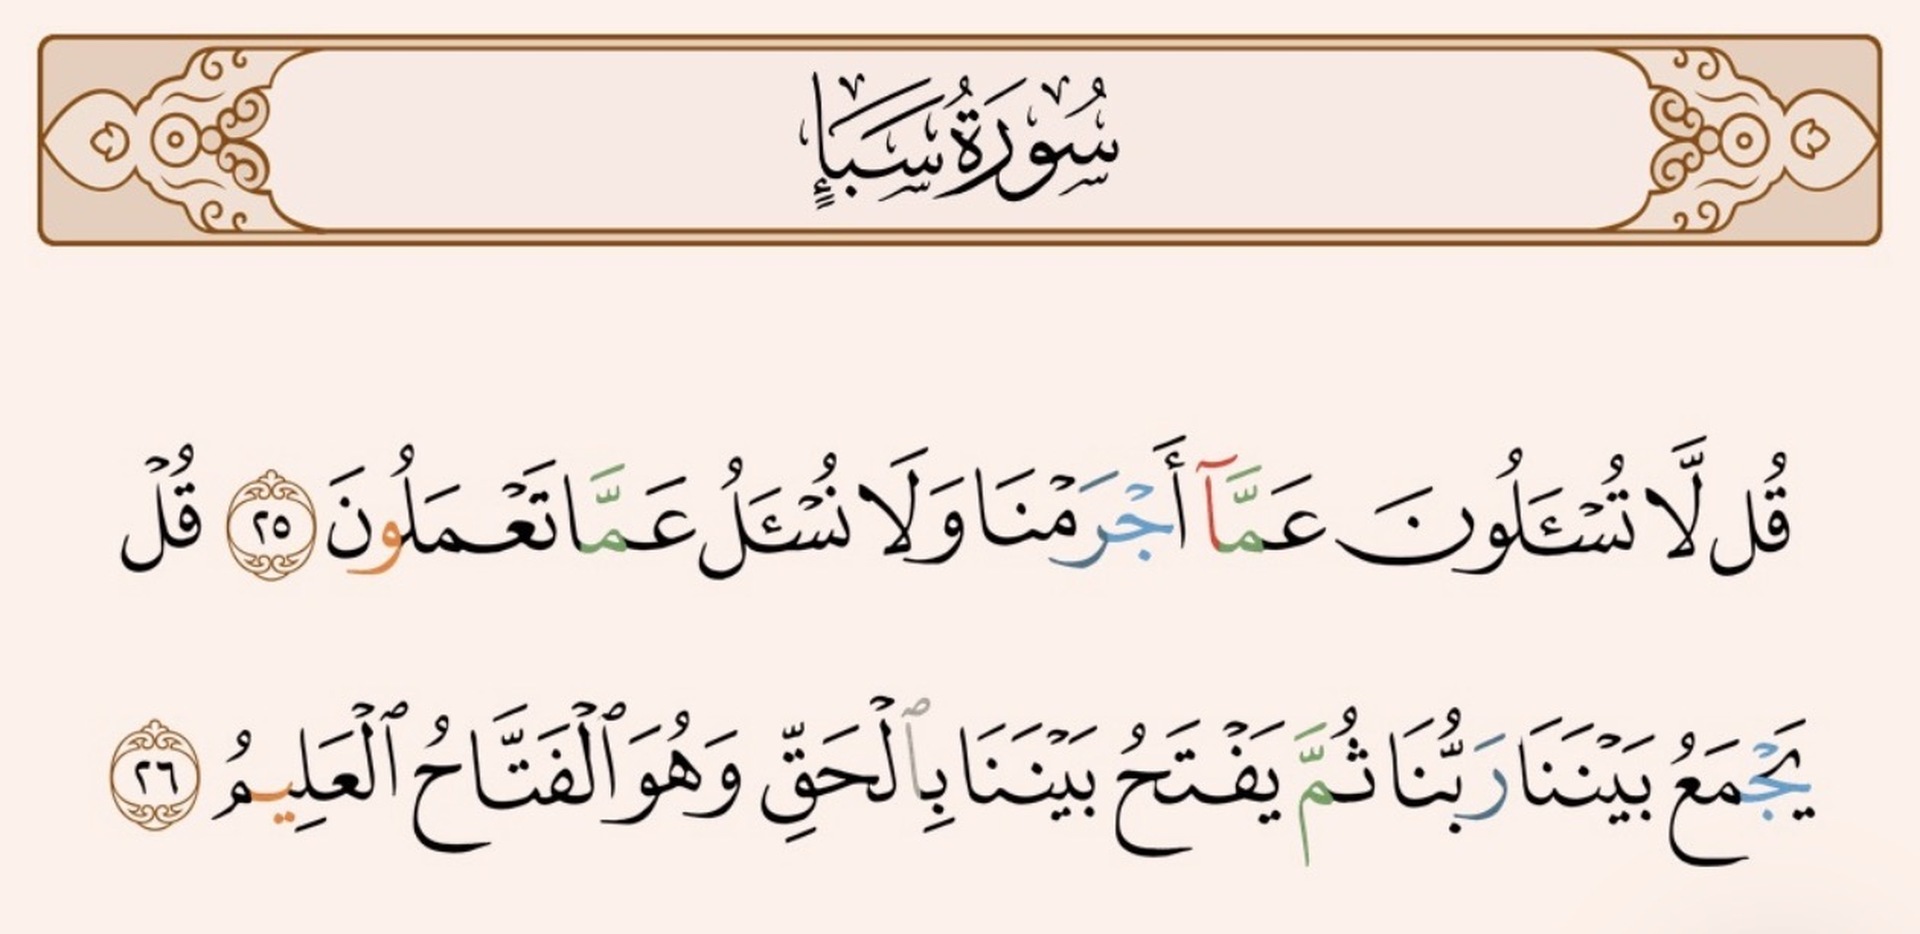 سُورَةُ سَبَإٍ
قُل لَّا تُسْـَٔلُونَ عَمَّآ أَجْرَمْنَا وَلَا نُسْـَٔلُ عَمَّا تَعْمَلُونَ ٢٥ قُلْ
يَجْمَعُ بَيْنَنَا رَبُّنَا ثُمَّ يَفْتَحُ بَيْنَنَا بِٱلْحَقِّ وَهُوَ ٱلْفَتَّاحُ ٱلْعَلِيمُ ٢٦